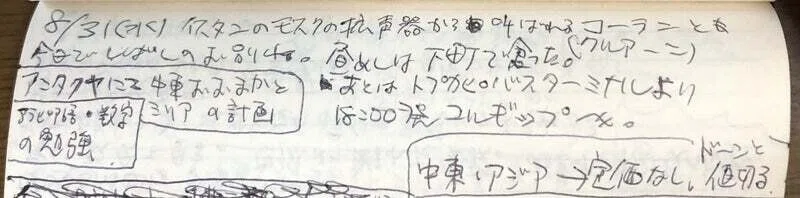 8/31(水) イスタンのモスクの拡声器から叫ばれるコーランとも
今日でしばしのお別れ。昼めしは下町で食った。(クルアーン)
あとはトプカピバスターミナルより
18:00発 コルギップへ。
アンタクヤにて中東おおまかと
シリアの計画
アラビア語・数字
の勉強
中東・アジア→定価なし、ドーンと値切る